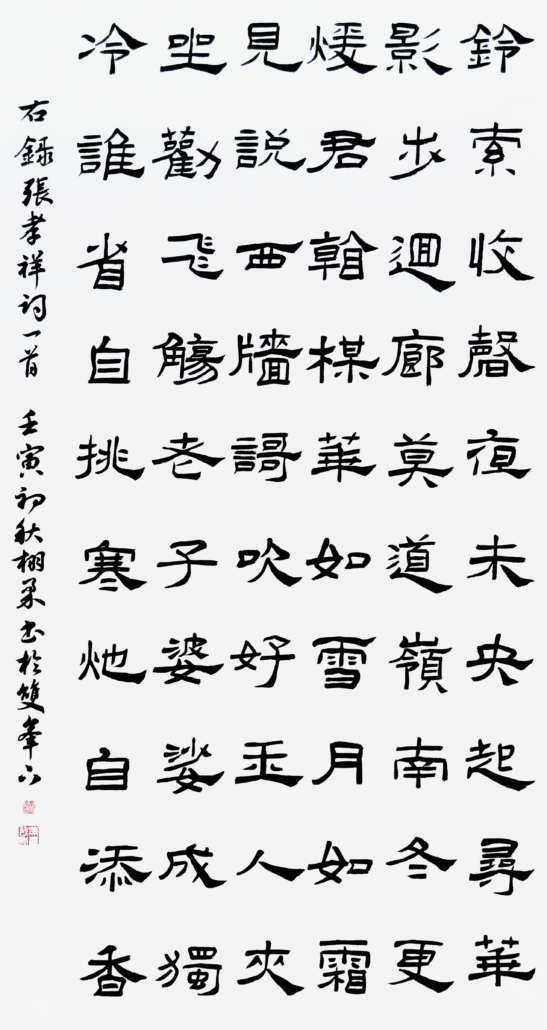 鈴索收聲夜未央起尋華
影步迴廊莫道嶺南冬更
煖君看楳華如雪月如霜
見説西牆謌吹好玉人夾
坐勸飛觴老子婆娑成獨
冷誰省自挑寒灺自添香
右錄張孝祥詞一首 壬寅初秋栩柔書於雙峯下